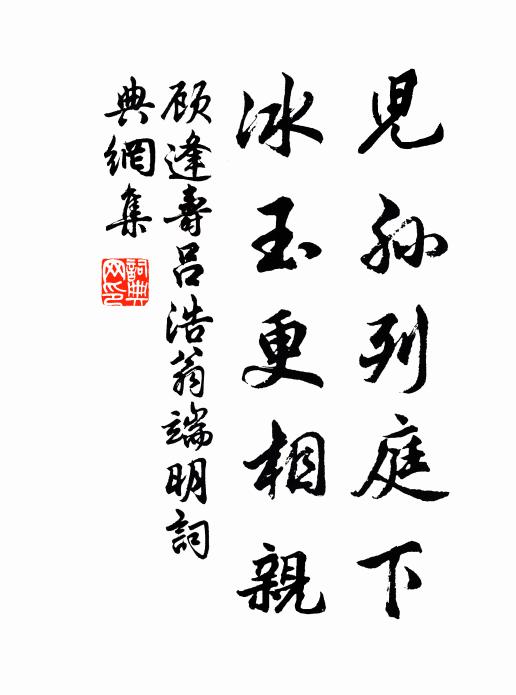 児孫列庭下
冰玉更相親
顾逢壽呂浩翁端明詞
典網集
詞典
网印